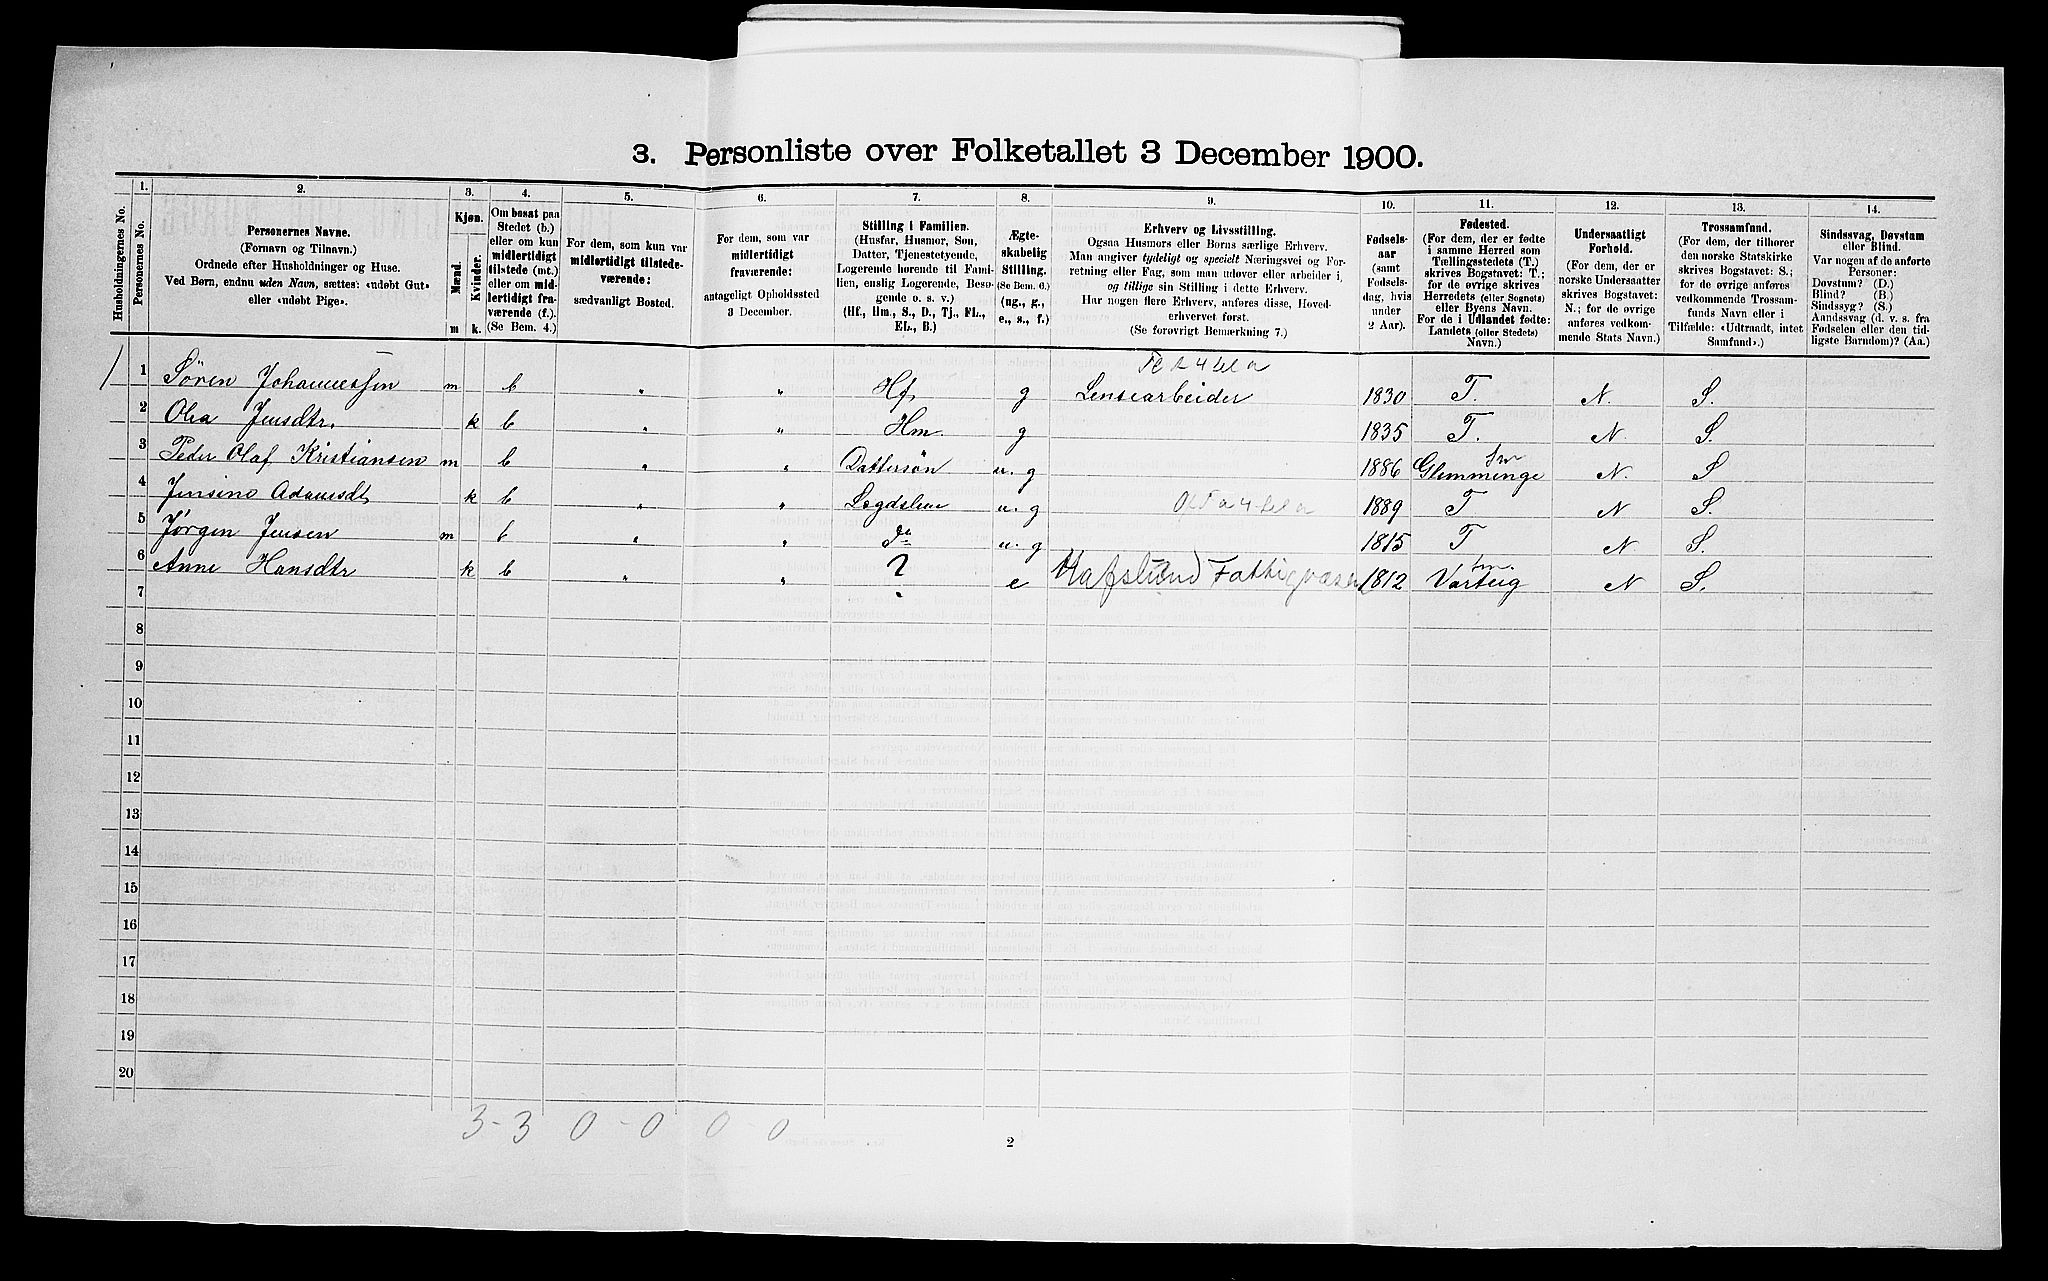 3. Personliste over Folketallet 3 December 1900.
1. 2. 3. 4. 5. 6. 7. 8. 9. 10. 11. 12. 13. 14.
Husholdningernes No.
Personernes No.
Personernes Navne.
(Fornavn og Tilnavn.)
Ordnede efter Husholdninger og Huse.
Ved Børn, endnu uden Navn, sættes: «udøbt Gut»
eller «udøbt Pige».
Kjøn.
Mænd.
Kvinder.
m k.
Om bosat paa
Stedet (b.)
eller om kun
midlertidigt
tilstede (mt.)
eller om mid-
lertidigt fra-
værende (f.).
(Se Bem. 4.)
For dem, som kun var
midlertidigt tilstede-
værende:
sædvanligt Bosted.
For dem, som var
midlertidigt
fraværende:
antageligt Opholdssted
3 December.
Stilling i Familien.
(Husfar, Husmor, Søn,
Datter, Tjenestetyende,
Logerende hørende til Fami-
lien, enslig Logerende, Besø-
gende o. s. v.)
(Hf., Hm., S., D., Tj., FL.,
EL., B.)
Ægte-
skabelig
Stilling.
(Se Bem. 6.)
(ug., g.,
e., s., f.)
Erhverv og Livsstilling.
Ogsaa Husmors eller Børns særlige Erhverv.
Man angiver tydeligt og specielt Næringsvei og For-
retning eller Fag, som man udøver eller arbeider i,
og tillige sin Stilling i dette Erhverv.
Har nogen flere Erhverv, anføres disse, Hoved-
erhvervet først.
(Se forøvrigt Bemerkning 7.)
Fødsels-
aar
(samt
Fødsels-
dag, hvis
under
2 Aar).
Fødested.
(For dem, der er fødte
i samme Herred som
Tællingsstedets (T.)
skrives Bogstavet: T.;
for de øvrige skrives
Herredets (eller Sognets)
eller Byens Navn.
For de i Udlandet fødte:
Landets (eller Stedets)
Navn.)
Undersaatligt
Forhold.
(For dem, der er
norske Undersaatter
skrives Bogstavet:
N.; for de øvrige
anføres vedkom-
mende Stats Navn.)
Trossamfund.
(For dem, der tilhører
den norske Statskirke
skrives Bogstavet: S.;
for de øvrige anføres
vedkommende Trossam-
funds Navn eller i
Tilfælde: «Udtraadt, intet
Samfund».)
Sindssvag, Døvstum
eller Blind.
Var nogen af de anførte
Personer:
Døvstum? (D.)
Blind? (B.)
Sindssyg? (S.)
Aandssvag (d. v. s. fra
Fødselen eller den tid-
ligste Barndom)? (Aa.)
1 Sören Johannessen m b " " Hf g Lensearbeider 1830 T. N. S.
2 Olea Jensdtr. k b " " Hm. g 1835 T. N. S.
3 Peder Olaf Kristiansen m b " " Dattersön u. g 1886 Glemminge Sm N. S
4 Jensine Adamsdt k b " " Legdslem u. g 1889 T N S.
5 Jørgen Jensen m b " " do u. g 1815 T N S.
6 Anne Hansdtr k b " " ? e Hafslund Fattigvæsen 1812 Varteig Sm. N S.
7
8
9
10
11
12
13
14
15
16
17
18
19
20
3-3 0-0 0-0
2